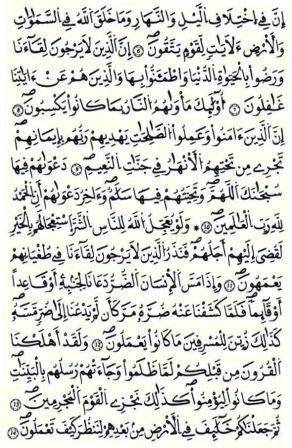 إِنَّ فِي ٱخْتِلَٰفِ ٱلَّيْلِ وَٱلنَّهَارِ وَمَا خَلَقَ ٱللَّهُ فِي ٱلسَّمَٰوَٰتِ
وَٱلْأَرْضِ لَأٓيَٰتٍ لِّقَوْمٍ يَتَّقُونَ ۝٦ إِنَّ ٱلَّذِينَ لَا يَرْجُونَ لِقَآءَنَا
وَرَضُوا۟ بِٱلْحَيَوٰةِ ٱلدُّنْيَا وَٱطْمَأَنُّوا۟ بِهَا وَٱلَّذِينَ هُمْ عَنْ ءَايَٰتِنَا
غَٰفِلُونَ ۝٧ أُو۟لَٰٓئِكَ مَأْوَىٰهُمُ ٱلنَّارُ بِمَا كَانُوا۟ يَكْسِبُونَ ۝٨
إِنَّ ٱلَّذِينَ ءَامَنُوا۟ وَعَمِلُوا۟ ٱلصَّٰلِحَٰتِ يَهْدِيهِمْ رَبُّهُم بِإِيمَٰنِهِمْ
تَجْرِي مِن تَحْتِهِمُ ٱلْأَنْهَٰرُ فِي جَنَّٰتِ ٱلنَّعِيمِ ۝٩ دَعْوَىٰهُمْ فِيهَا
سُبْحَٰنَكَ ٱللَّهُمَّ وَتَحِيَّتُهُمْ فِيهَا سَلَٰمٌ وَءَاخِرُ دَعْوَىٰهُمْ أَنِ ٱلْحَمْدُ
لِلَّهِ رَبِّ ٱلْعَٰلَمِينَ ۝١٠ وَلَوْ يُعَجِّلُ ٱللَّهُ لِلنَّاسِ ٱلشَّرَّ ٱسْتِعْجَالَهُم بِٱلْخَيْرِ
لَقُضِيَ إِلَيْهِمْ أَجَلُهُمْ فَنَذَرُ ٱلَّذِينَ لَا يَرْجُونَ لِقَآءَنَا فِي طُغْيَٰنِهِمْ
يَعْمَهُونَ ۝١١ وَإِذَا مَسَّ ٱلْإِنسَٰنَ ٱلضُّرُّ دَعَانَا لِجَنۢبِهِۦٓ أَوْ قَاعِدًا
أَوْ قَآئِمًا فَلَمَّا كَشَفْنَا عَنْهُ ضُرَّهُۥ مَرَّ كَأَن لَّمْ يَدْعُنَآ إِلَىٰ ضُرٍّ مَّسَّهُۥ
كَذَٰلِكَ زُيِّنَ لِلْمُسْرِفِينَ مَا كَانُوا۟ يَعْمَلُونَ ۝١٢ وَلَقَدْ أَهْلَكْنَا
ٱلْقُرُونَ مِن قَبْلِكُمْ لَمَّا ظَلَمُوا۟ وَجَآءَتْهُمْ رُسُلُهُم بِٱلْبَيِّنَٰتِ
وَمَا كَانُوا۟ لِيُؤْمِنُوا۟ كَذَٰلِكَ نَجْزِي ٱلْقَوْمَ ٱلْمُجْرِمِينَ ۝١٣
ثُمَّ جَعَلْنَٰكُمْ خَلَٰٓئِفَ فِي ٱلْأَرْضِ مِنۢ بَعْدِهِمْ لِنَنظُرَ كَيْفَ تَعْمَلُونَ ۝١٤